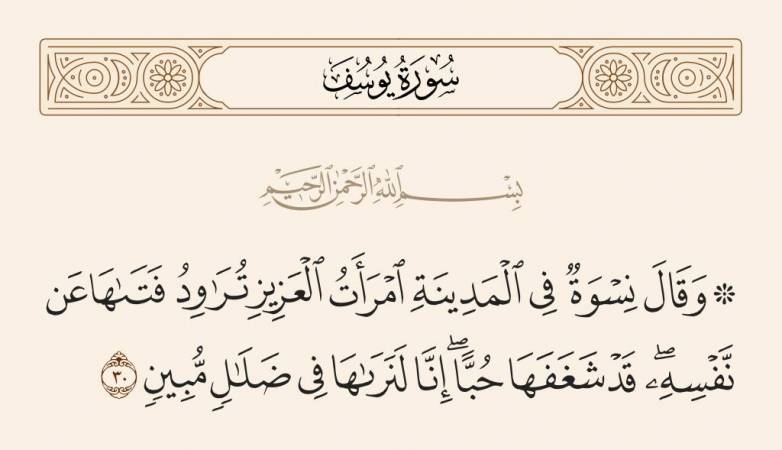 سُورَةُ يُوسُفَ
بِسْمِ ٱللَّهِ ٱلرَّحْمَٰنِ ٱلرَّحِيمِ
۞ وَقَالَ نِسْوَةٌ فِي ٱلْمَدِينَةِ ٱمْرَأَتُ ٱلْعَزِيزِ تُرَٰوِدُ فَتَىٰهَا عَن
نَّفْسِهِۦۖ قَدْ شَغَفَهَا حُبًّاۖ إِنَّا لَنَرَىٰهَا فِي ضَلَٰلٖ مُّبِينٖ ٣٠